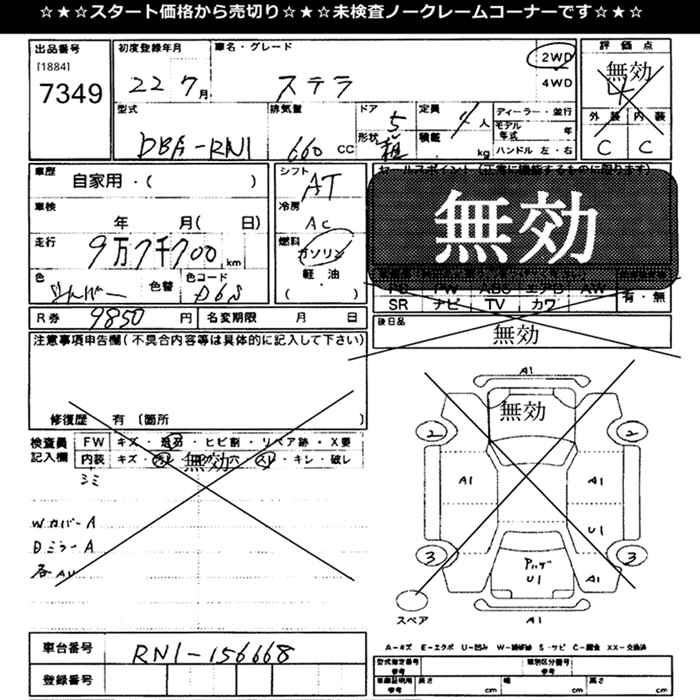 ☆★☆★スタート価格から売切り☆★☆★未検査ノークレームコーナーです☆★☆★
出品番号
[1884]
7349
初度登録年月
22 7月
車名・グレード
ステラ
2WD
4WD
評価点
無効
4
外装 内装
C C
型式
DBA-RN1
排気量
660 CC
ドア 5
形状 箱
定員 4 人
積載 kg
ディーラー・並行
モデル年式 年
ハンドル 左・右
車歴
自家用・( )
車検
年 月( 日)
走行
9万7千700 km
色
シルバー
色替
色コード
D6S
シフト
AT
冷房
AC
燃料
ガソリン
軽・油
( )
セールスポイント(正常に機能するものに限ります)
無効
PS PW ABS エアB AW
SR ナビ TV カワ
有・無
後日品
無効
R券 9850 円
名変期限 月 日
注意事項申告欄(不具合内容等は具体的に記入して下さい)
修復歴 有 [箇所 ]
検査員記入欄
FW キズ・飛石・ヒビ割・リペア跡・X要
内装 キズ・ ・穴・スレ・キレ・破レ
無効
シミ
WカバーA
DミラーA
各AU
A1
無効
2 2
A1 A1
U1
3 3
A1
U1
A1
スペア
A-キズ E-エクボ U-凹み S-サビ C-腐食 XX-交換済
車台番号
RN1-156668
登録番号
型式指定番号
参考
類別区分番号
参考
車庫証明用
参考
長さ cm
幅 cm
高さ cm